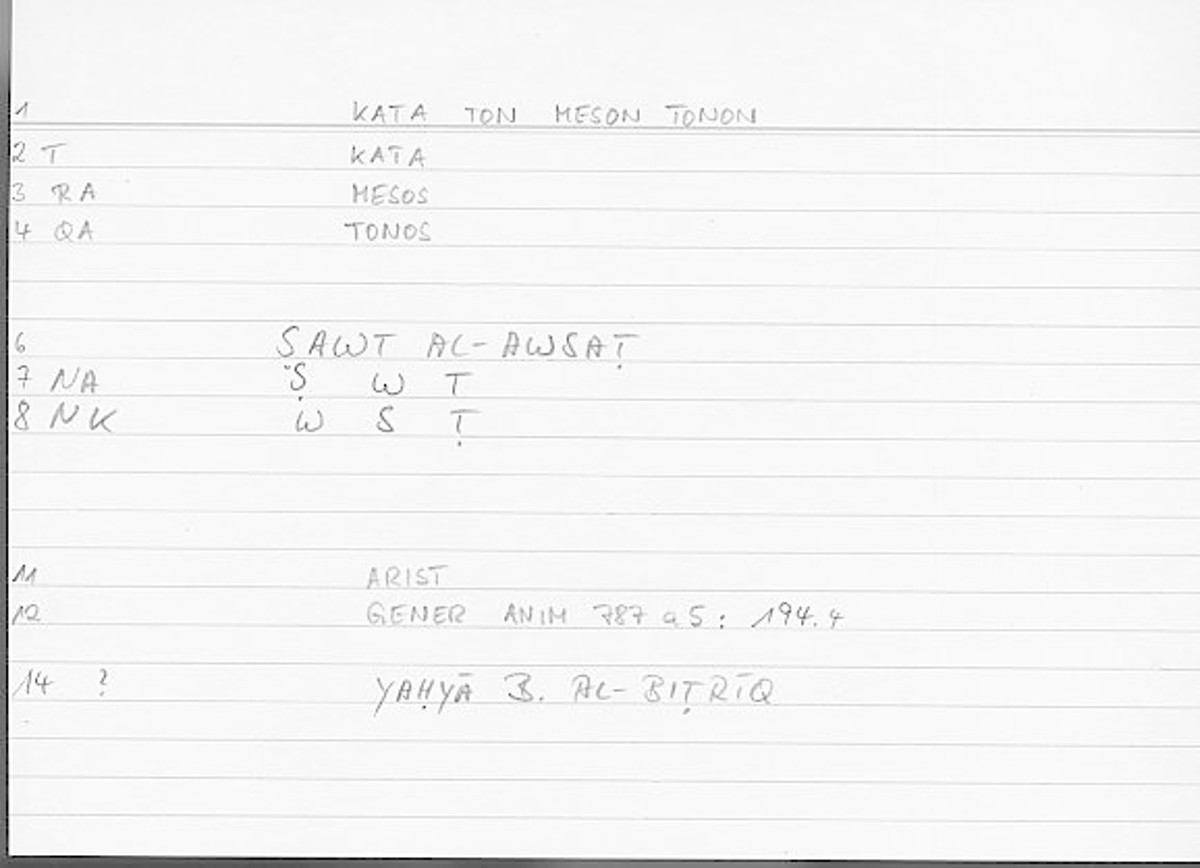 1 KATA TON MESON TONON
2 T KATA
3 RA MESOS
4 QA TONOS
6 ṢAWT AL-AWSAṬ
7 NA Ṣ W T
8 NK W S Ṭ
11 ARIST
12 GENER ANIM 787 a 5 : 194.4
14 ? YAḤYĀ B. AL-BIṬRĪQ